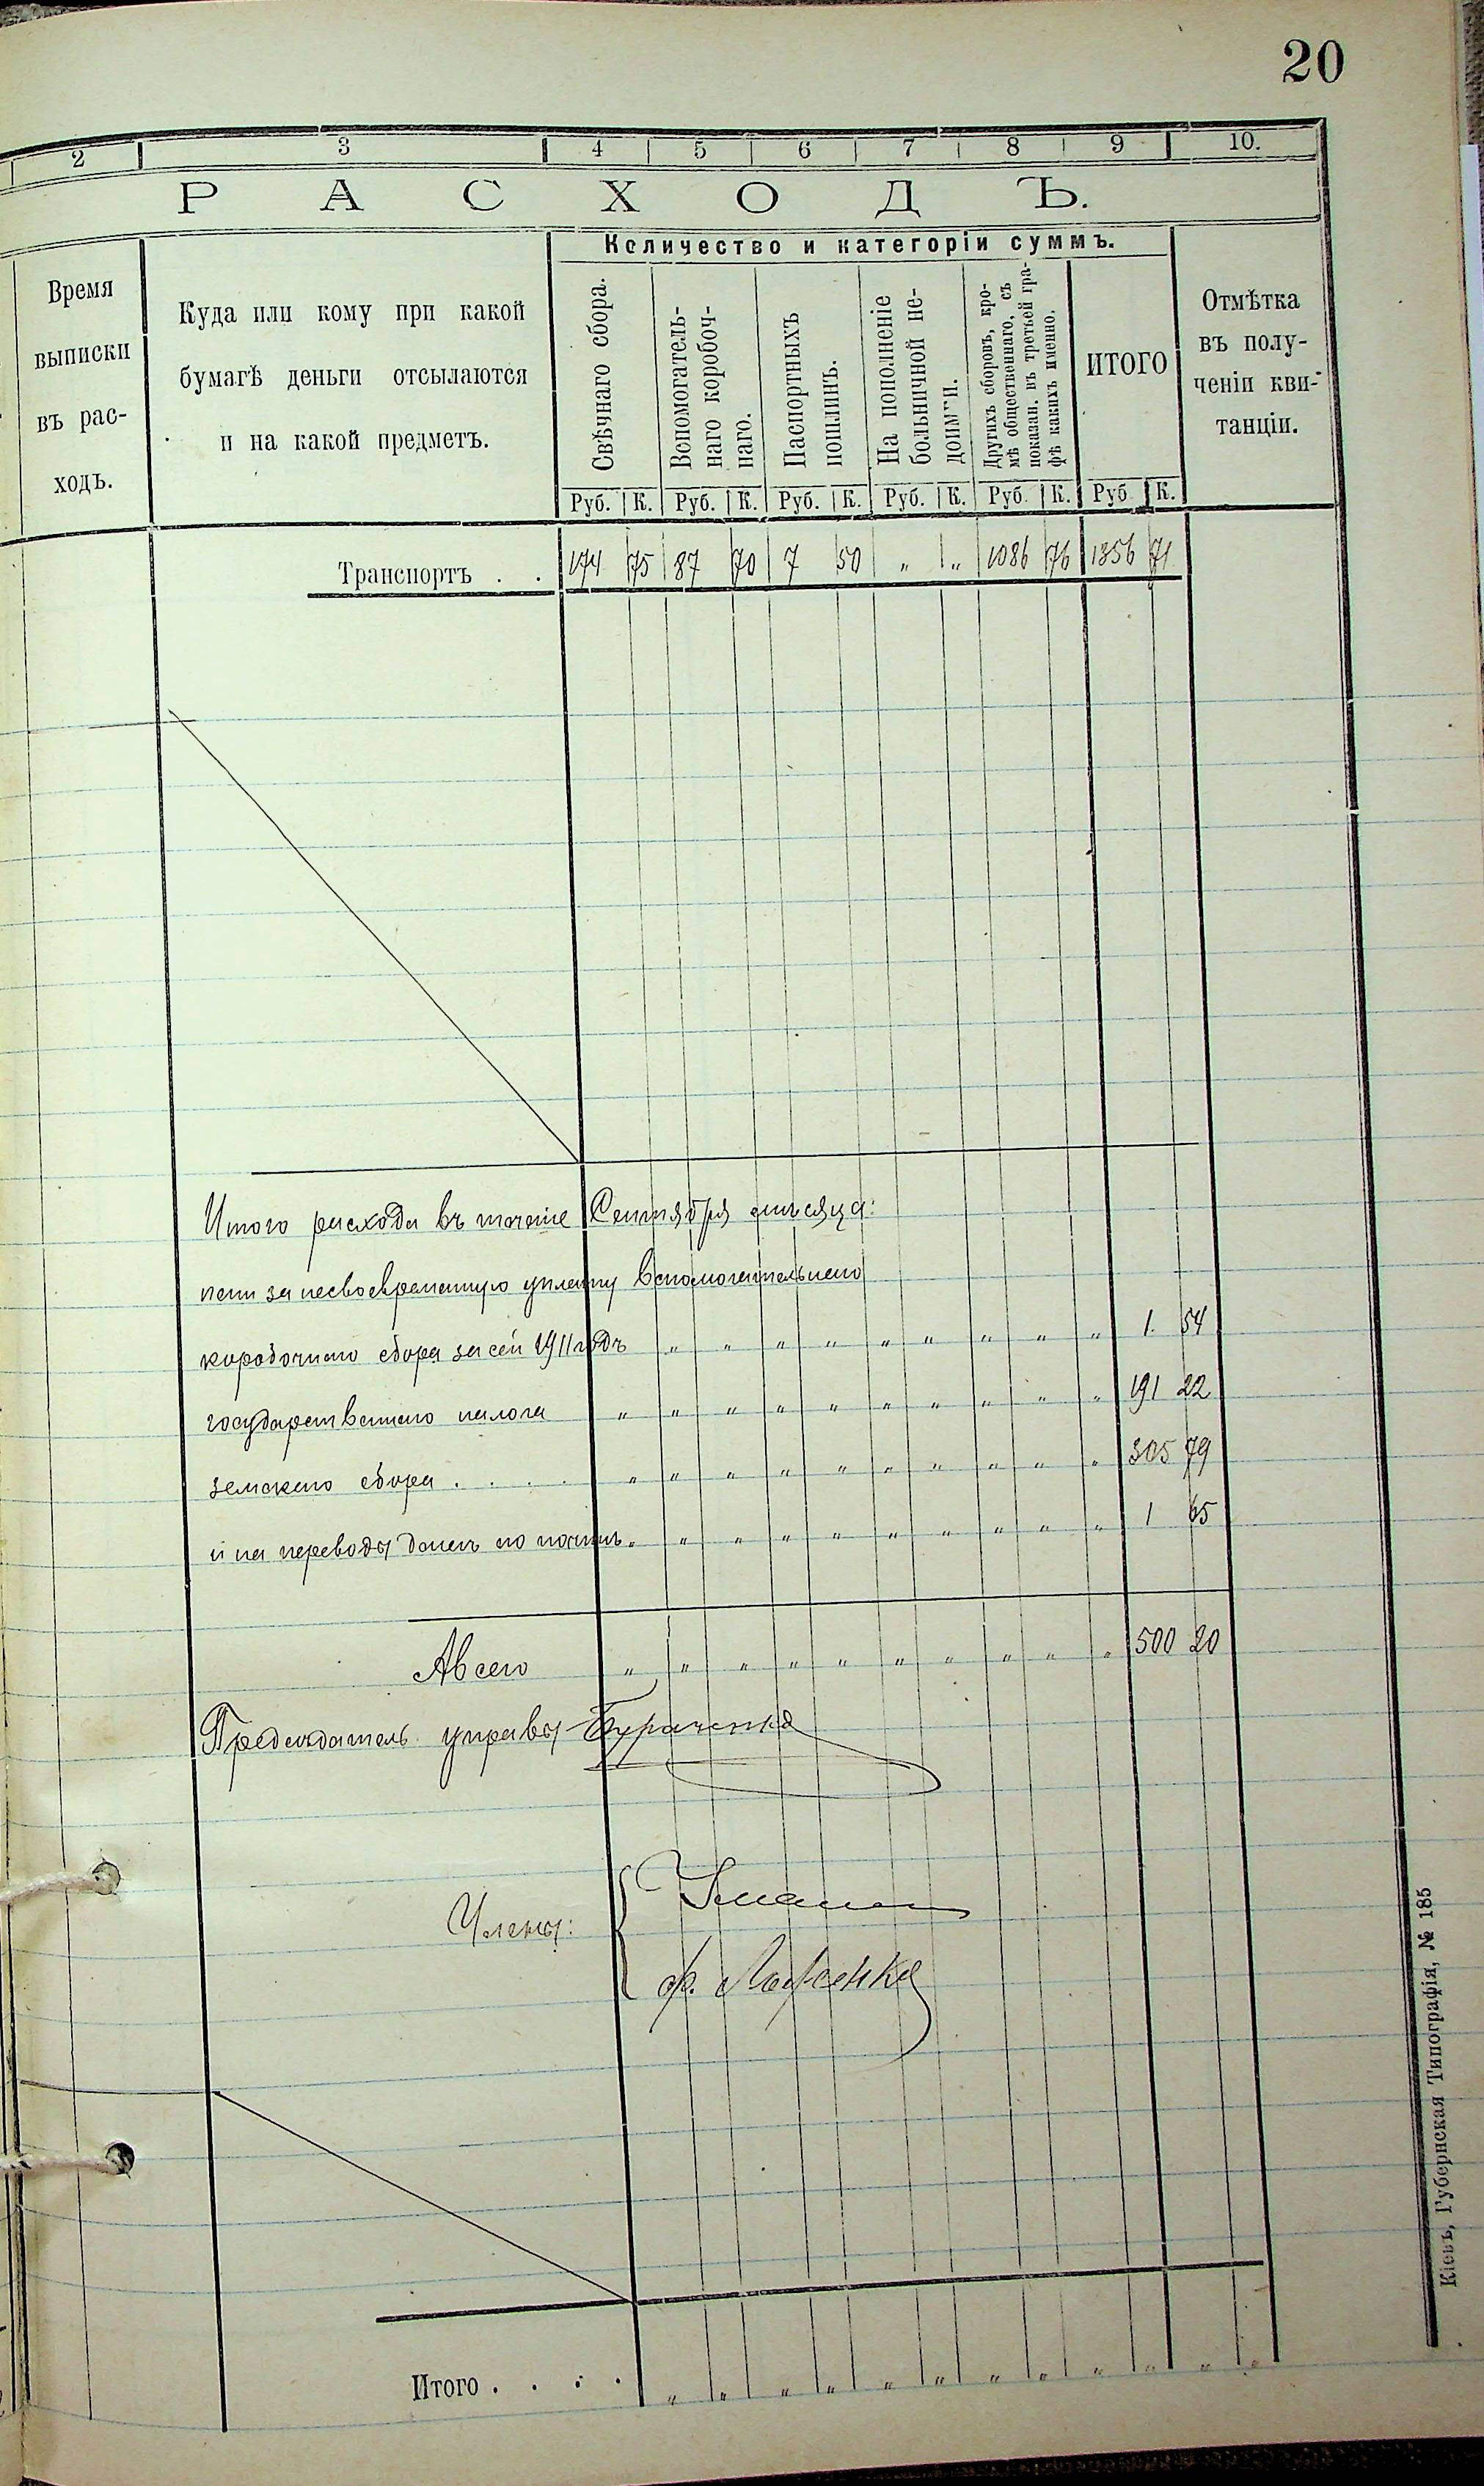 20
2 3 4 5 6 7 8 9 10.
РАСХОДЪ.
Количество и категоріи суммъ.
Время
выписки
въ рас-
ходъ.
Куда или кому при какой
бумагѣ деньги отсылаются
и на какой предметъ.
Свѣчнаго сбора.
Вспомогатель-
наго коробоч-
наго.
Паспортныхъ
пошлинъ.
На пополненіе
больничной не-
доимки.
Другихъ сборовъ, кро-
мѣ общественнаго, съ
показан. въ третьей гра-
фѣ какихъ именно.
ИТОГО
Отмѣтка
въ полу-
ченіи кви-
танціи.
Руб. К. Руб. К. Руб. К. Руб. К. Руб. К. Руб. К.
Транспортъ . . 174 75 87 70 7 50 „ „ 1086 76 1356 71
Итого расхода въ теченіе Сентября мѣсяца:
пени за несвоевременную уплату вспомогательнаго
коробочнаго сбора за сей 1911 годъ „ „ „ „ „ „ „ „ „ 1. 54
государственнаго налога „ „ „ „ „ „ „ „ „ „ 191 22
земскаго сбора . . . . „ „ „ „ „ „ „ „ „ „ 305 79
и на переводы денегъ по почтѣ „ „ „ „ „ „ „ „ „ „ 1 65
А всего „ „ „ „ „ „ „ „ „ „ 500 20
Предсѣдатель управы
Члены:
Ф.
Итого . . . . „ „ „ „ „ „ „ „ „ „ „ „
Кіевъ, Губернская Типографія, № 185